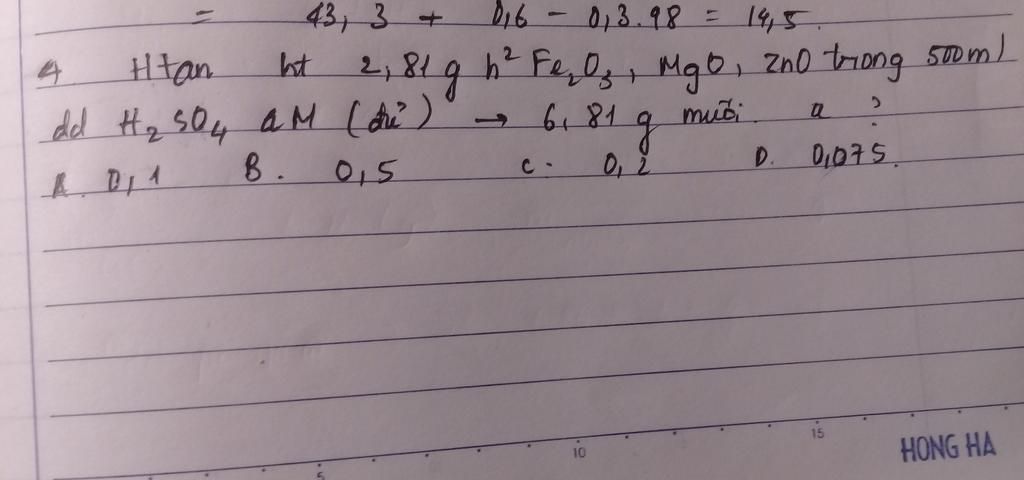 = 43,3 + 0,6 - 0,3.98 = 14,5.
4 Htan ht 2,81g h² Fe₂O₃, MgO, ZnO trong 500ml
dd H₂SO₄ aM (đủ) → 6,81 g muối. a ?
A. 0,1 B. 0,5 C. 0,2 D. 0,075.
5 10 15
HONG HA